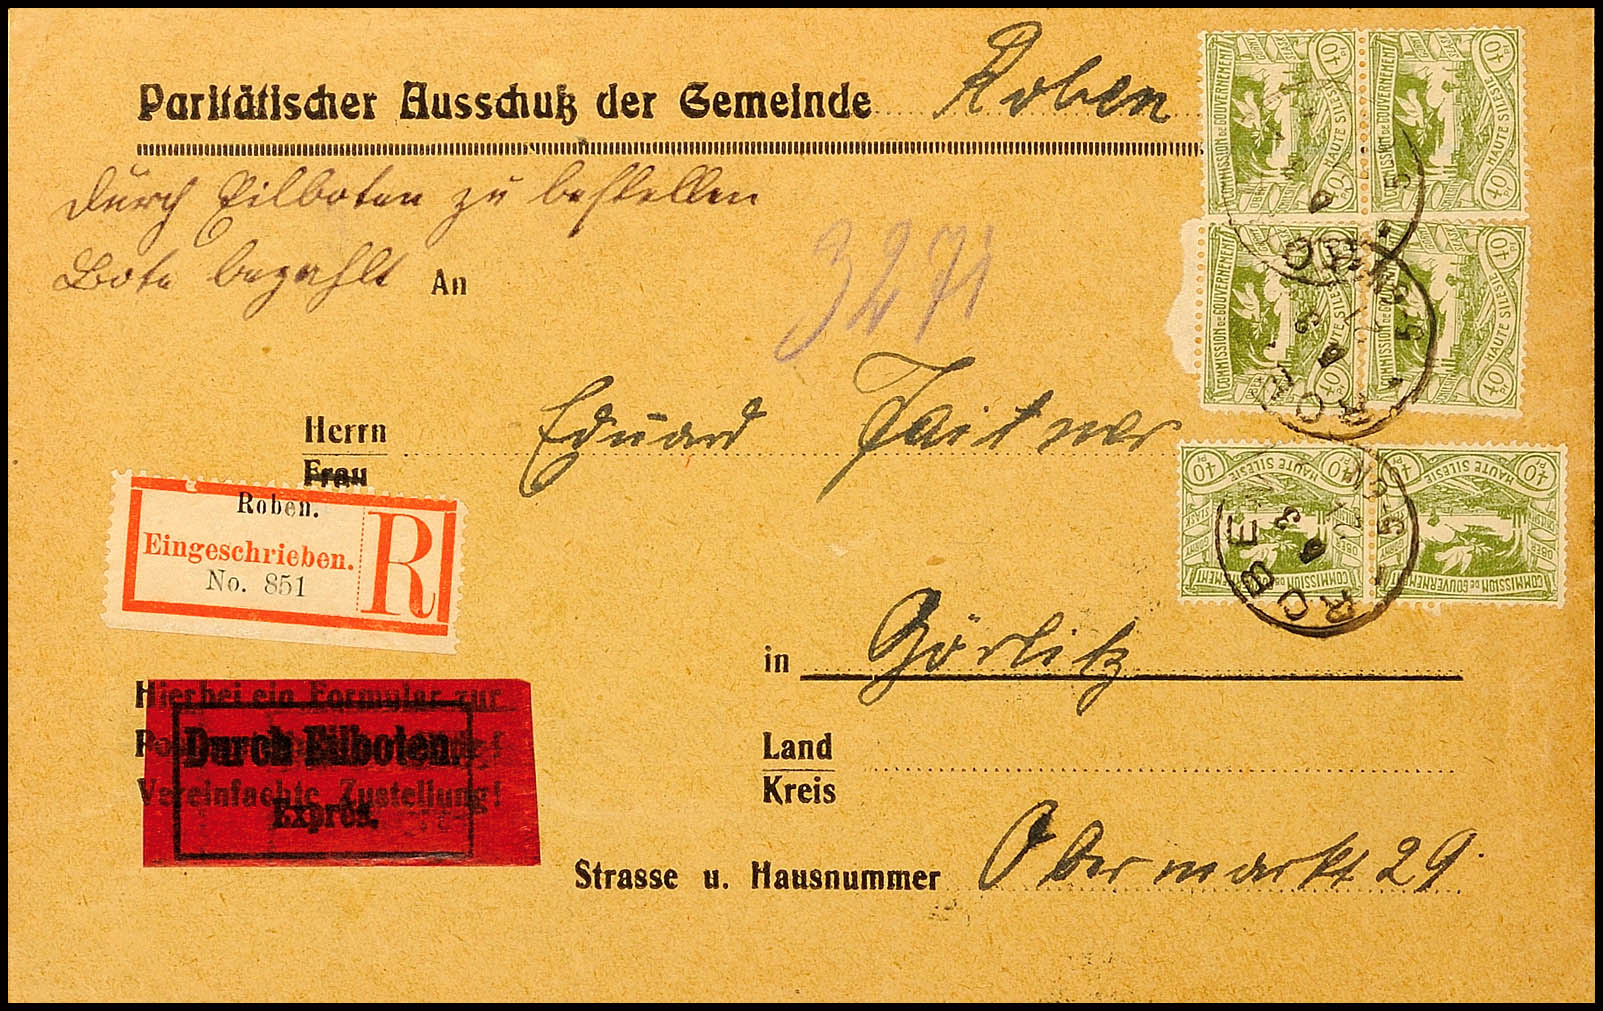 Paritätischer Ausschuß der Gemeinde Roben
durch Eilboten zu bestellen
Bote bezahlt
An
3271
Herrn Eduard
Frau
Roben.
Eingeschrieben.
No. 851
R
in Görlitz
Hierbei ein Formular zur
Durch Eilboten.
Vereinfachte Zustellung!
Expres.
Land
Kreis
Strasse u. Hausnummer Obermarkt 29.
COMMISSION DE GOUVERNEMENT
HAUTE SILESIE
40
COMMISSION DE GOUVERNEMENT
HAUTE SILESIE
40
COMMISSION DE GOUVERNEMENT
HAUTE SILESIE
40
COMMISSION DE GOUVERNEMENT
HAUTE SILESIE
40
COMMISSION DE GOUVERNEMENT
HAUTE SILESIE
40
COMMISSION DE GOUVERNEMENT
HAUTE SILESIE
40
ROBEN